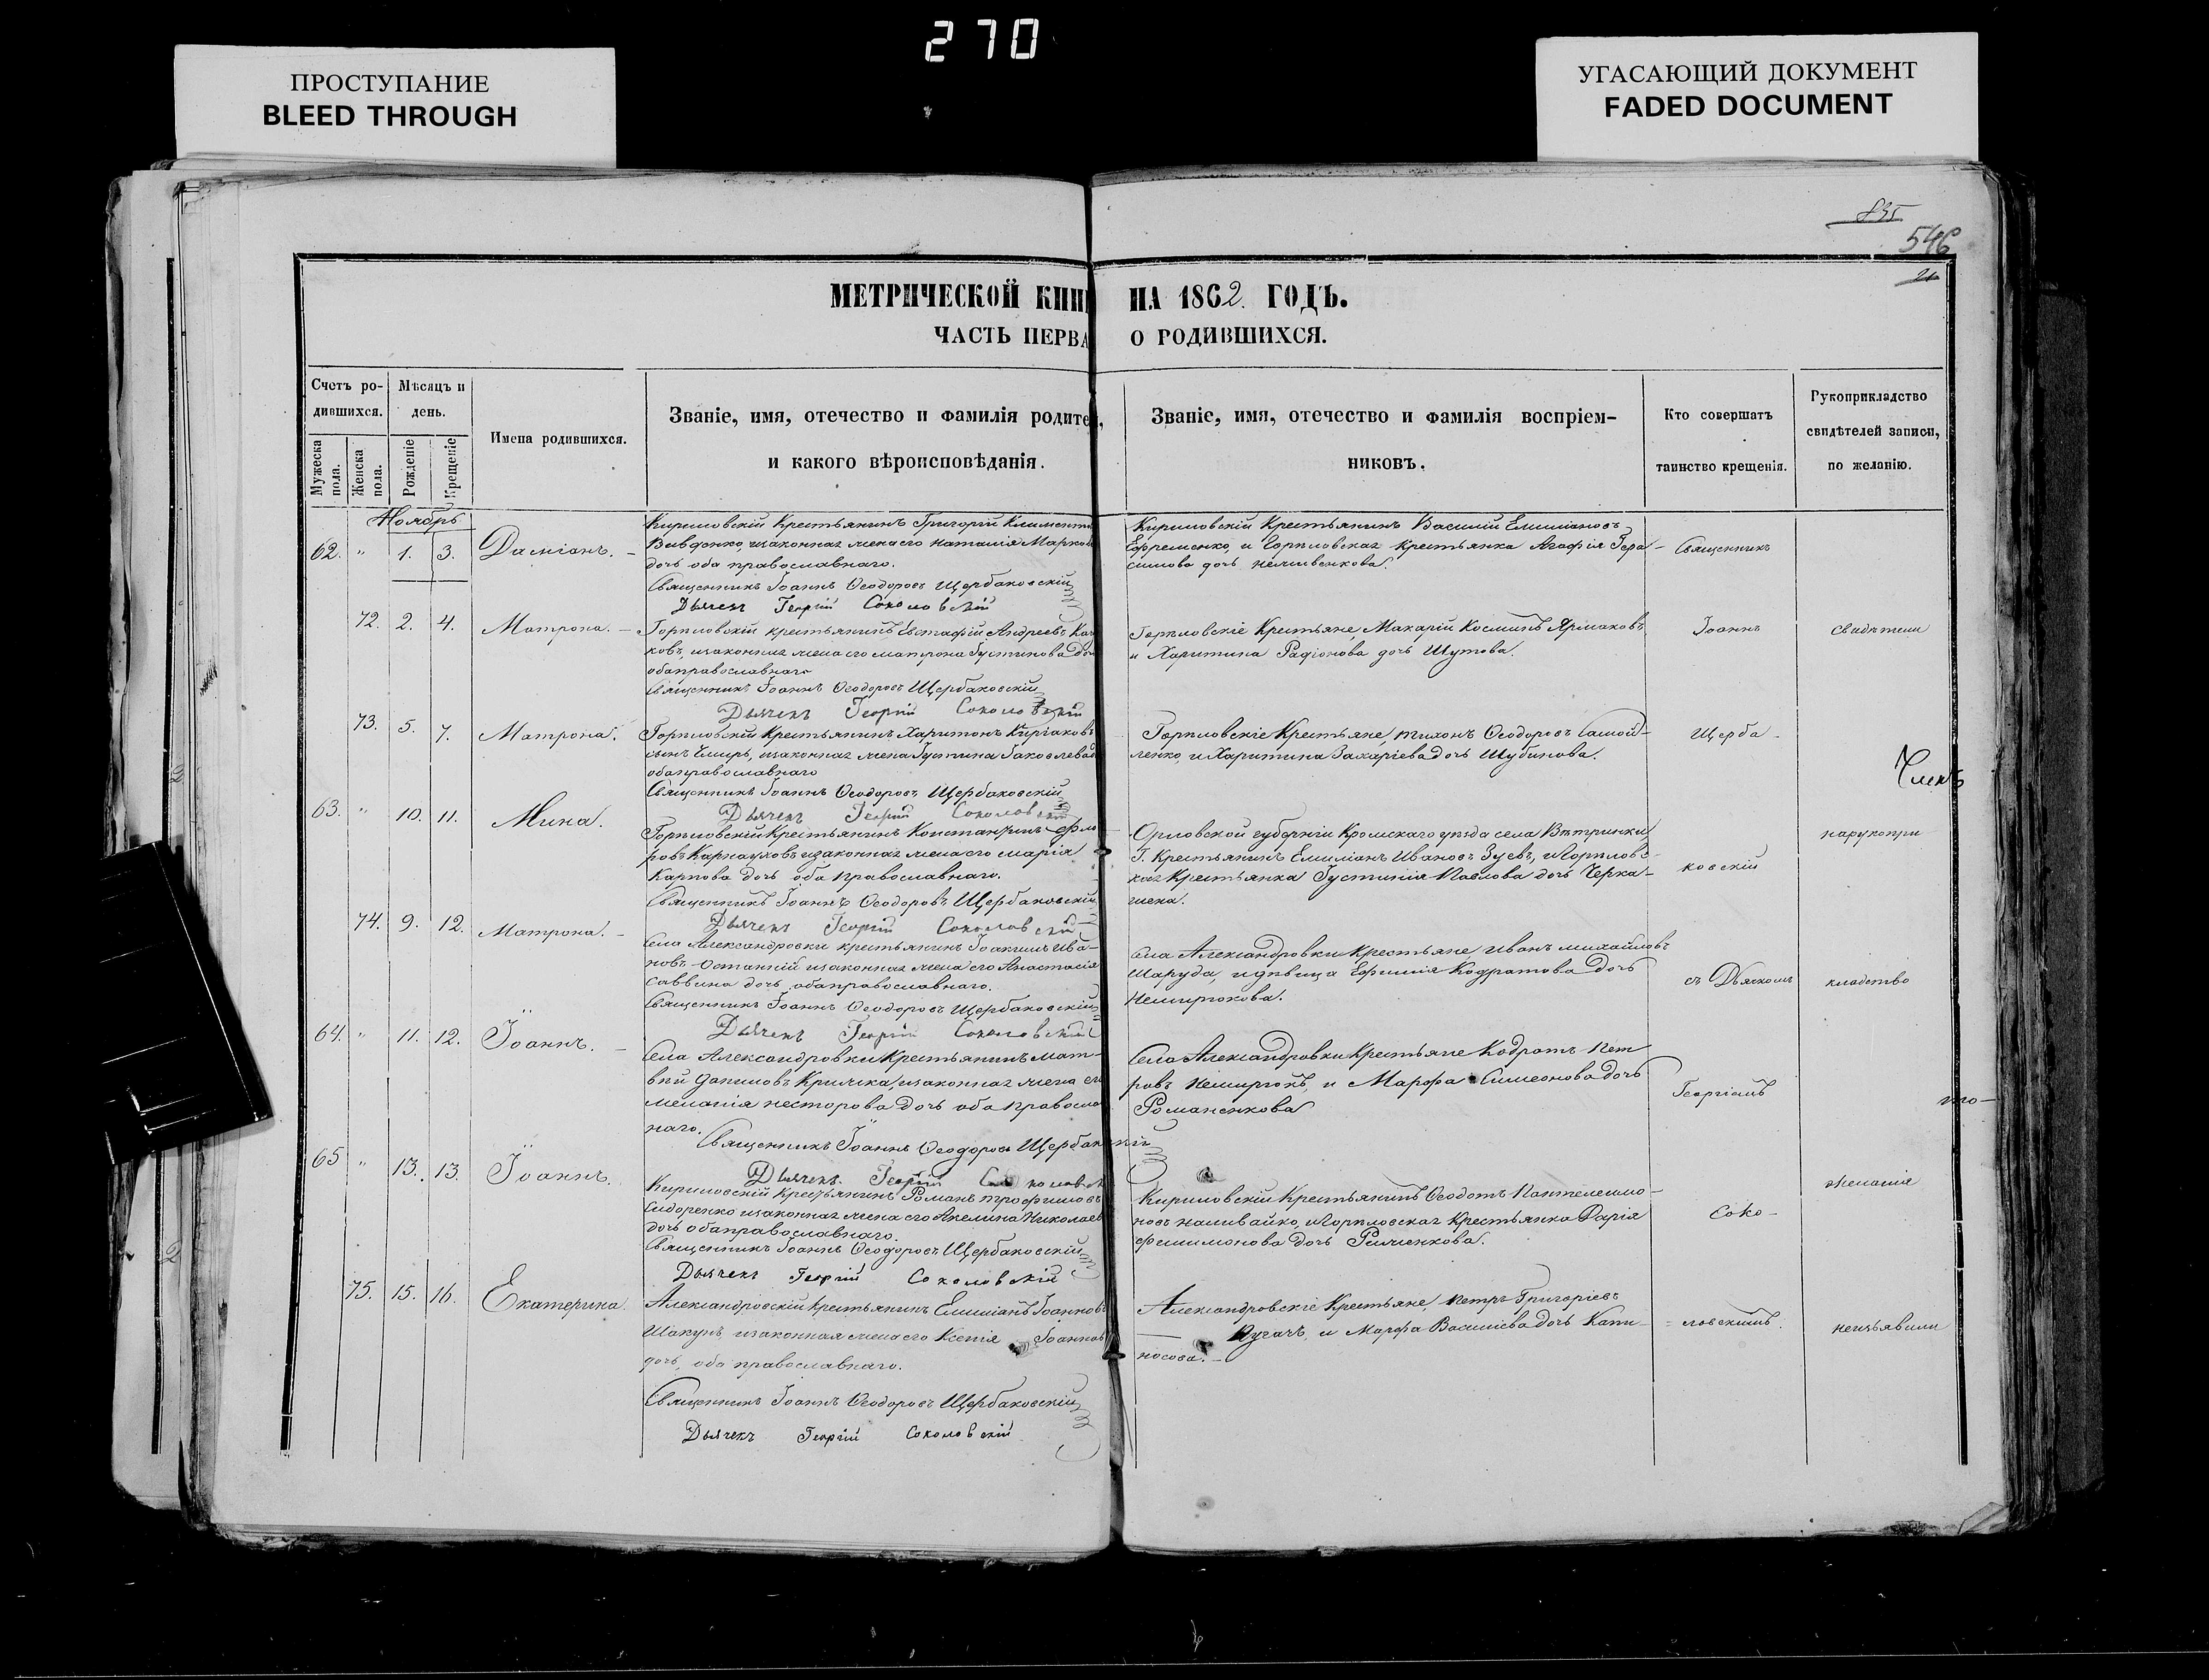 270
ПРОСТУПАНИЕ
BLEED THROUGH
УГАСАЮЩИЙ ДОКУМЕНТ
FADED DOCUMENT
546
МЕТРИЧЕСКОЙ КНИ НА 1862 ГОДЪ.
ЧАСТЬ ПЕРВА О РОДИВШИХСЯ.
Счетъ ро-
дившихся.
Мѣсяцъ и
день.
Мужеска пола.
Женска пола.
Рожденіе
Крещеніе
Имена родившихся.
Званіе, имя, отечество и фамилія родите
и какого вѣроисповѣданія.
Званіе, имя, отечество и фамилія воспріем-
никовъ.
Кто совершатъ
таинство крещенія.
Рукоприкладство
свидѣтелей записи,
по желанію.
Ноябрь
62. " 1. 3. Даміанъ.
Кириловскій Крестьянинъ Григорій Климент
Вивденко, изаконная жена его Наталія Марков
дочь оба православнаго.
Священникъ Іоаннъ Ѳеодоровъ Щербаковскій
Дьячекъ Георгій Соколовскій
Кириловскій Крестьянинъ Василій Емиліановъ
Ефременко, и Горпловская крестьянка Агафія Гера-
симова дочь
Священникъ
72. 2. 4. Матрона.
Горпловскій крестьянинъ Евстафій Андреевъ Ка
ковъ, изаконная жена его матрона Густинова до
обаправославнаго
Священникъ Іоаннъ Ѳеодоровъ Щербаковскій
Дьячекъ Георгій Соколовскій
Горпловскіе Крестьяне, Макарій Косминъ Ярмаковъ
и Харитина Радіонова дочь Шутова.
Іоаннъ
свидѣтели
73. 5. 7. Матрона.
Горпловскій Крестьянинъ Харитонъ Киріаковъ
сынъ Чмиръ, изаконная жена Густина Іаковлева
обаправославнаго
Священникъ Іоаннъ Ѳеодоровъ Щербаковскій
Дьячекъ Георгій Соколовскій
Горпловскіе Крестьяне, тихонъ Ѳеодоровъ Самой-
ленко, и Харитина Захаріева дочь Шубинова.
Щерба-
63. " 10. 11. Мина.
Горпловскій Крестьянинъ Константинъ Фло
ровъ Карнауховъ изаконная жена его марія
Карпова дочь оба православнаго.
Священникъ Іоаннъ Ѳеодоровъ Щербаковскій
Дьячекъ Георгій Соколовскій
Орловской губерніи Кромскаго уѣзда села Вѣтринки,
Г. Крестьянинъ Емиліанъ Ивановъ Зуевъ, и Горпловс-
кая Крестьянка Густинія Павлова дочь Черка-
ковскій
нарукопри
74. 9. 12. Матрона.
Села Александровки крестьянинъ Іоакимъ Ива-
новъ Останній изаконная жена его Анастасія
Саввина дочь обаправославнаго.
Священникъ Іоаннъ Ѳеодоровъ Щербаковскій
Дьячекъ Георгій Соколовскій
Села Александровки Крестьяне Иванъ михайловъ
Шаруда, и дѣвица Ефимія Кодратова дочь
Немирюкова.
съ Дьячкомъ
кладство
64. " 11. 12. Іоаннъ.
Села Александровки Крестьянинъ Мат-
вѣй Даниловъ Крижка, изаконная жена ег
Меланія несторова дочь оба правосла
наго.
Священникъ Іоаннъ Ѳеодоровъ Щербак
Дьячекъ Георгій Соколовск
Села Александровки Крестьяне Кодратъ Пет
ровъ Немирюкъ, и Марфа Симеонова дочь
Романенкова
Георгіемъ
65 " 13. 13. Іоаннъ.
Кириловскій крестьянинъ Романъ трофимовъ
Сидоренко изаконная жена его Акелина Николаев
дочь обаправославнаго.
Священникъ Іоаннъ Ѳеодоровъ Щербаковскій
Дьячекъ Георгій Соколовскій
Кириловскій Крестьянинъ Ѳеодотъ Пантелеимо-
новъ наливайко, и Горпловская Крестьянка Дарія
филимонова дочь
Соко-
желанія
75. 15. 16. Екатерина.
Александровскій крестьянинъ Емиліанъ Іоаннов
Шакунъ, изаконная жена его Ксенія Іоаннов
дочь, оба православнаго.
Священникъ Іоаннъ Ѳеодоровъ Щербаковскій
Дьячекъ Георгій Соколовскій
Александровскіе Крестьяне, Петръ Григоріевъ
Пугачъ, и Марфа Василіева дочь Капи-
носова.
ловскимъ.
неизъявили